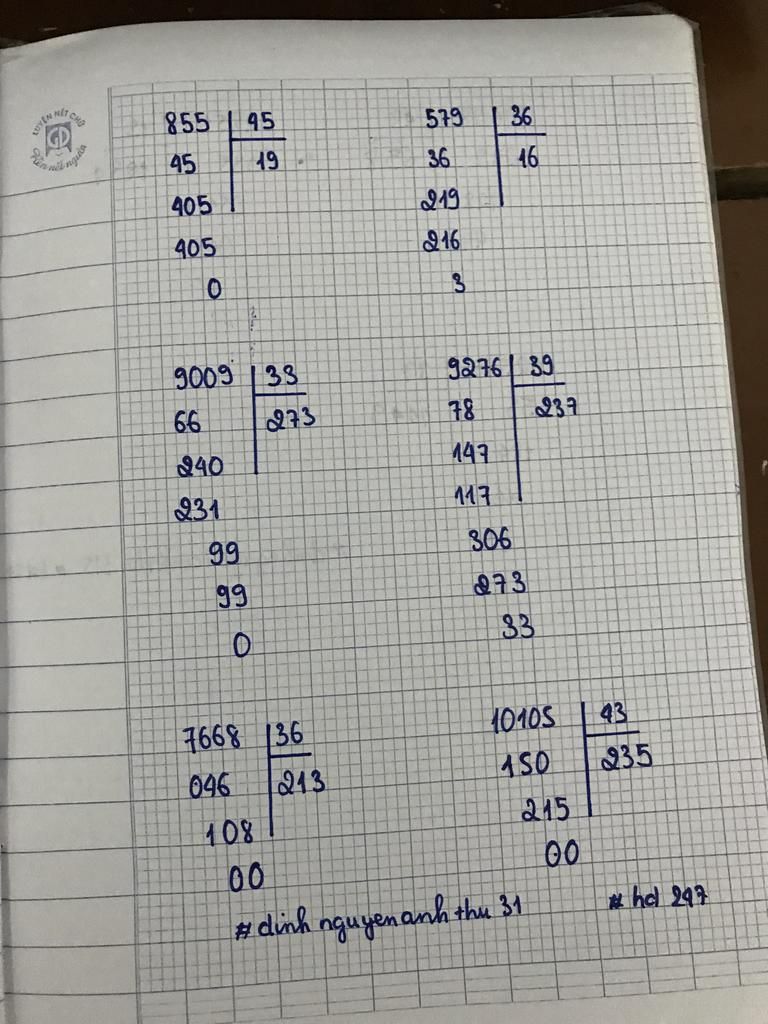 LUYỆN NÉT CHỮ
Rèn nết người
855 45
45 19
405
405
0
579 36
36 16
219
216
3
9009 33
66 273
240
231
99
99
0
9276 39
78 237
147
117
306
273
33
7668 36
046 213
108
00
10105 43
150 235
215
00
# dinh nguyen anh thu 31
# hd 247